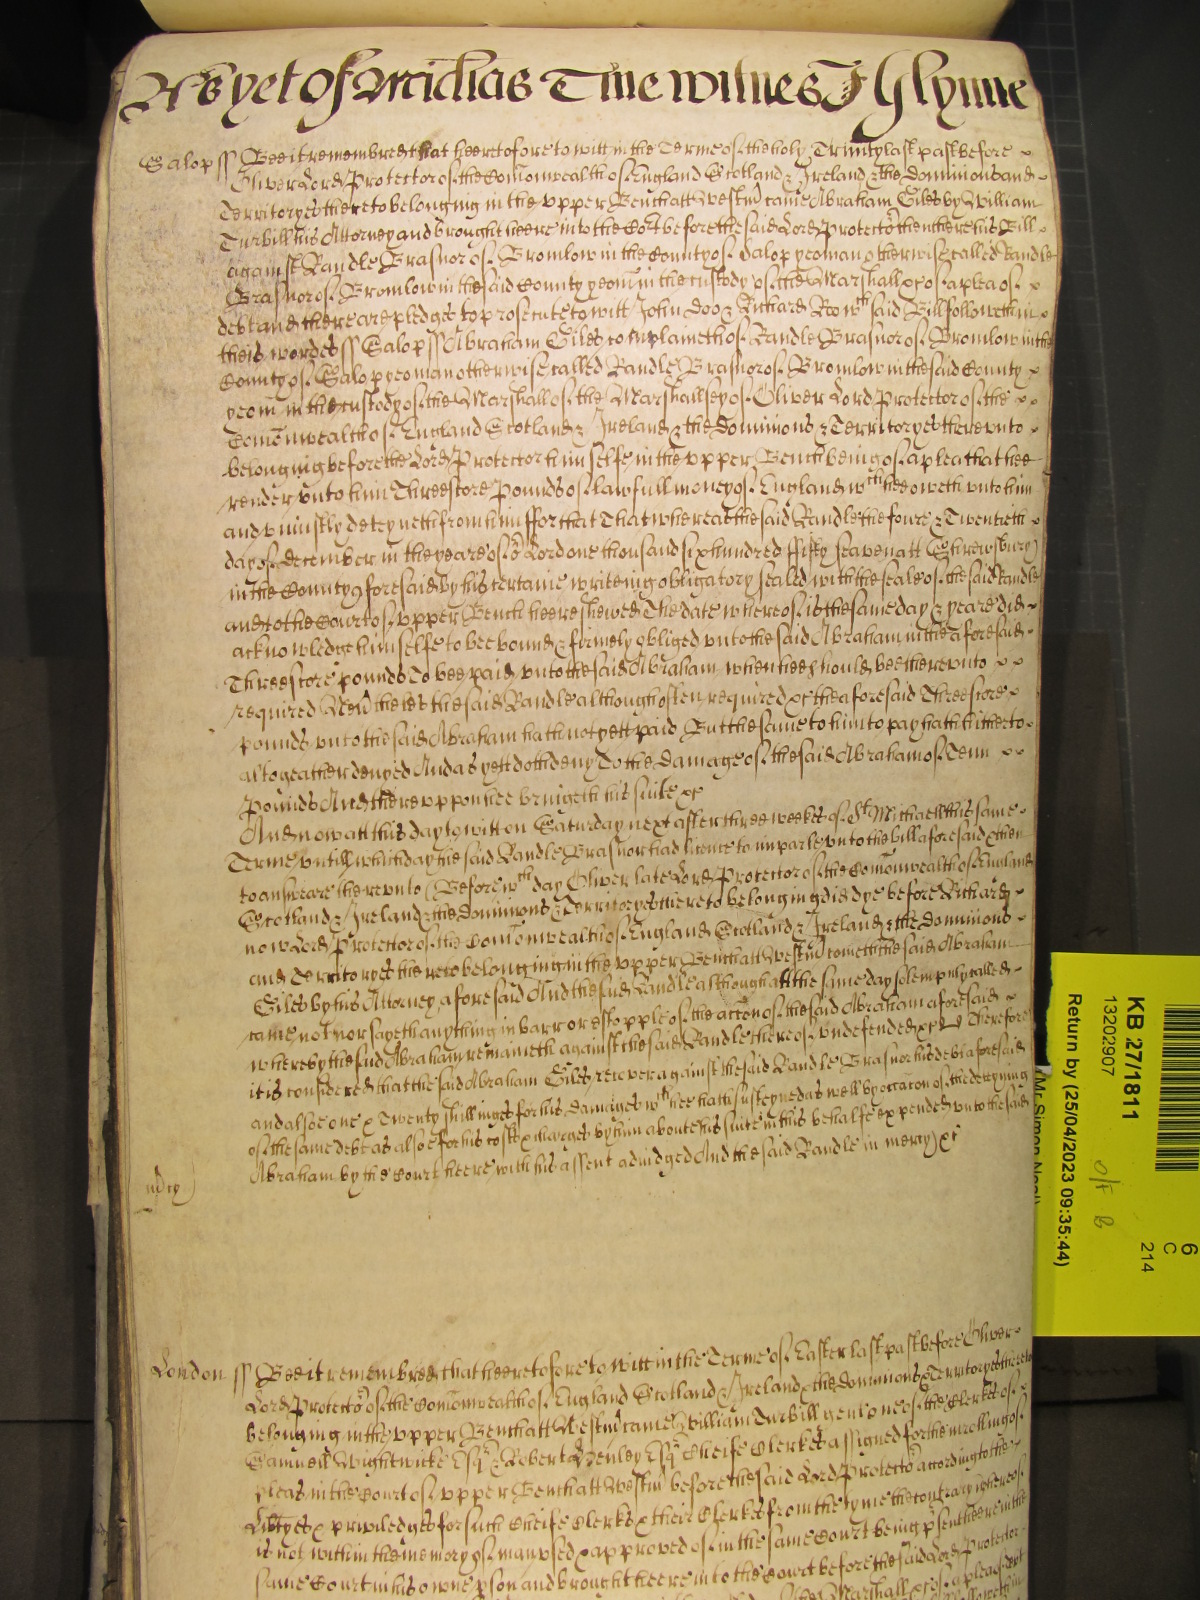 As yet of Michas Tme witnes J Glynne
Salop ss Bee it remembred that heeretofore to witt in the Terme of the holy Trinity last past before
Oliver Lord Protector of the Comonwealth of England Scotland & Ireland & the Dominions and
Territoryes thereto belonging in the upper Bench att Westmr came Abraham Giles by William
Turbill his Attorney and brought heere into the Cort before the said Lord Protector then there his Bill
against Randle Brasnor of Bromlow in the County of Salop yeoman otherwise called Randle
Brasnor of Bromlow in the said County yeom in the custody of the Marshall &c of a plea of
debt and there are pledges to prosecute to witt John Doo & Richard Roo wch said Bill followeth in
theis wordes ss Salop ss Abraham Giles complaineth of Randle Brasnor of Bromlow in the
County of Salop yeoman otherwise called Randle Brasnor of Bromlow in the said County
yeom in the custody of the Marshall of the Marshallsey of Oliver Lord Protector of the
Comonwealth of England Scotland & Ireland & the Dominions & Territoryes thereunto
belonging before the Lord Protector himselfe in the upper Bench being of a plea that hee
render unto him Threescore Pounds of lawfull money of England wch hee oweth unto him
and uniustly deteyneth from him ffor that That whereas the said Randle the foure & Twentieth
day of December in the yeare of or Lord one thousand six hundred ffifty seaven att Shrewsbury
in the County aforesaid by his certaine writeing obligatory sealed with the seale of the said Randle
and to the Court of upper Bench heere shewed The date whereof is the same day & yeare did
acknowledge himselfe to bee bound & firmely obliged unto the said Abraham in the aforesaid
Threescore pounds To bee paid unto the said Abraham when hee should bee thereunto
required Neverthelesse the said Randle although often required &c the aforesaid Threescore
pounds unto the said Abraham hath not yett paid But the same to him to pay hath hitherto
altogeather denyed And as yett doth deny To the damage of the said Abraham of Tenn
Pounds And thereuppon hee bringeth his suite &c
And now att this day to witt on Saturday next after three weekes of St Michaell this same
Terme untill which day the said Randle Brasnor had licence to imparle unto the bill aforesaid & then
to answeare thereunto (Before wch day Oliver late Lord Protector of the Comonwealth of England
Scotland & Ireland & the dominions & Territoryes thereto belonging did dye before Richard
now Lord Protector of the Comonwealth of England Scotland & Ireland & the Dominions
and Territoryes thereto belonging in the upper Bench att Westmr cometh the said Abraham
Giles by his Attorney aforesaid And the said Randle although att the same day solempnly called
came not nor sayeth anything in barr or estopple of the accon of the said Abraham aforesaid
whereby the said Abraham remaineth against the said Randle thereof undefended &c Therefore
it is considered that the said Abraham Giles recover against the said Randle Brasnor his debt aforesaid
and alsoe one & Twenty shillinges for his damages wch hee hath susteyned as well by occacon of the deteyning
of the same debt as alsoe for his costs & charges by him about his suite in this behalfe expended unto the said
Abraham by the Court heere with his assent adiudged And the said Randle in mercy &c
London ss Bee it remembred that heeretofore to witt in the Terme of Easter last past before Oliver
Lord Protector of the Comonwealth of England Scotland & Ireland & the dominions & Territoryes thereto
belonging in the upper Bench att Westmr came William Turbill gent one of the Clerkes of
Samuell Wightwicke Esqr & Robert Henley Esqr Cheife Clerkes assigned for the inrolling of
pleas in the Court of upper Bench att Westmr before the said Lord Protector according to the
Libtyes & priviledges for such Cheife Clerks & their Clerkes from the tyme the contrary whereof
is not within the memory of man used & approved of in the same Court being psent heere in the
same Court in his owne pson and brought heere into the Court before the said Lord Protector
KB 27/1811
13202907
Return by (25/04/2023 09:35:44)
6
C
214